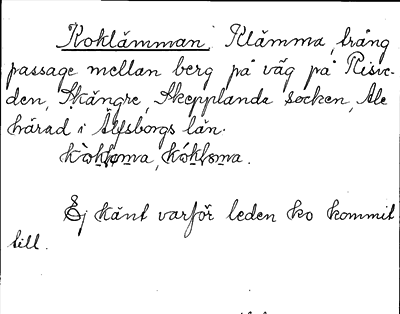 Koklämman. Klämma, trång
passage mellan berg på väg på Risve-
den, Skängre, Skepplanda socken, Ale
härad i Älfsborgs län.
Ej känt varför leden ko kommit
till.